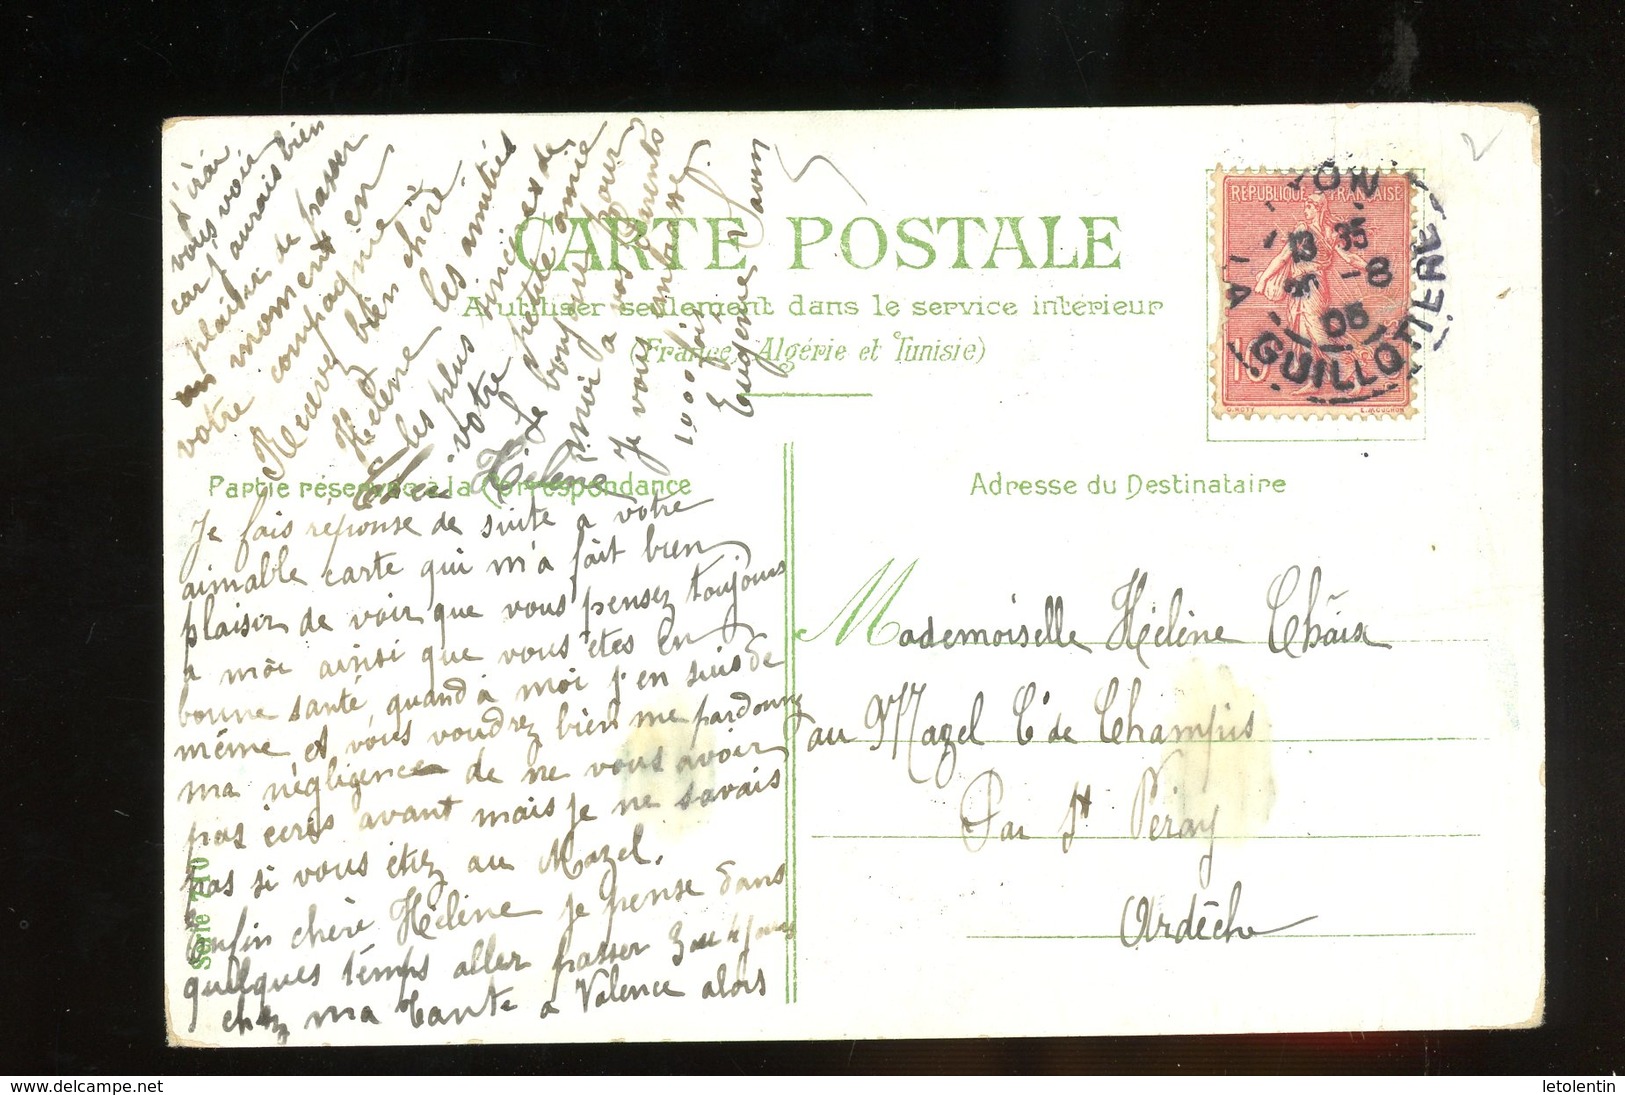 CARTE POSTALE
A utiliser seulement dans le service intérieur
(France, Algérie et Tunisie)
Partie réservée à la Correspondance
Adresse du Destinataire
REPUBLIQUE FRANÇAISE
LYON
LA GUILLOTIERE
13 35
-8
05
O. ROTY
E. MOUCHON
2
Chère Hélène
Je fais réponse de suite a votre
aimable carte qui m'a fait bien
plaisir de voir que vous pensez toujours
a moi ainsi que vous êtes en
bonne santé, quand à moi j'en suis de
même et vous voudrez bien me pardonnez
ma négligence de ne vous avoir
pas écris avant mais je ne savais
pas si vous étiez au Mazel.
Enfin chère Hélène je pense dans
quelques temps aller passer 3 ou 4 jours
chez ma tante a Valence alors
j'irai
vous voir
car j'aurais bien
plaisir de passer
un moment en
votre compagnie
Recevez bien chère
Hélène les amitiés
les plus sincères de
votre petite amie
Le bonjour pour
moi a vos parents
Je vous embrasse
1000 fois
Eugénie
Mademoiselle Hélène Chaix
au Mazel Cne de Champis
Par St Péray
Ardèche
Série 710
www.delcampe.net
letolentin